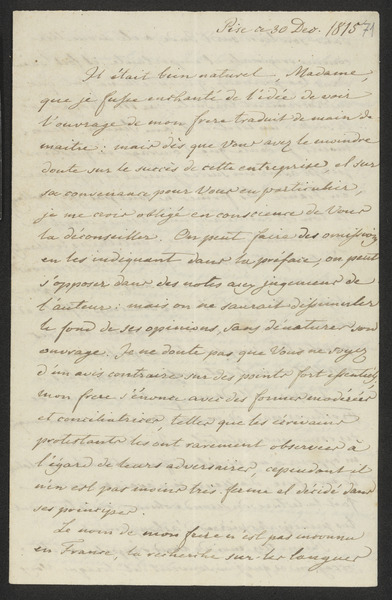 Pise ce 30 Dec. 1815
71
Il était bien naturel, Madame,
que je fusse enchanté de l'idée de voir
l'ouvrage de mon frere traduit de main de
maitre: mais dès que Vous avez le moindre
doute sur le succès de cette entreprise, et sur
sa convenance pour Vous en particulier,
je me crois obligé en conscience de Vous
la déconseiller. On peut faire des omissions
en les indiquant dans la préface, on peut
s'opposer dans des notes aux jugemens de
l'auteur: mais on ne saurait dissimuler
le fond de ses opinions, sans dénaturer son
ouvrage. Je ne doute pas que Vous ne soyez
d'un avis contraire sur des points fort essentiels,
mon frere s'énonce avec des formes modérées
et conciliatrices, telles que les écrivains
protestants les ont rarement observées à
l'égard de leurs adversaires, cependant il
n'en est pas moins très-ferme et décidé dans
ses principes.
Le nom de mon frere n'est pas inconnu
en France, sa recherche sur les langues